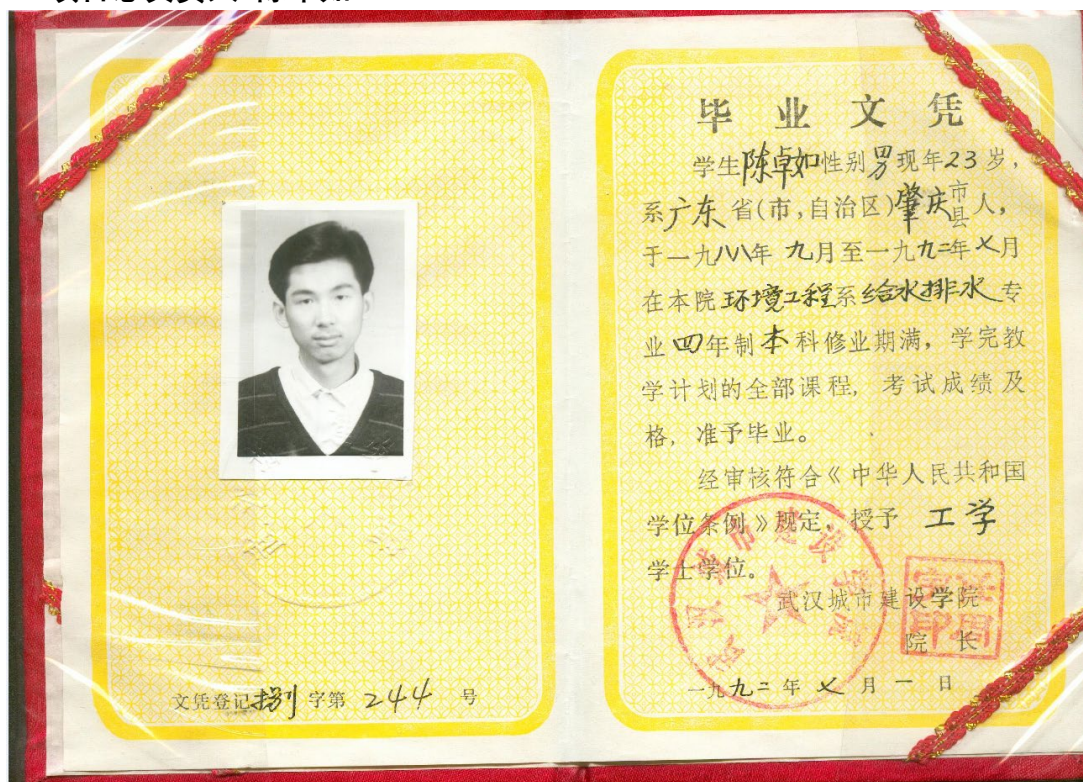 文凭登记捌字第 244 号
毕业文凭
学生陈卓如性别男现年23岁，
系广东省(市，自治区)肇庆市县人，
于一九八八年九月至一九九二年七月
在本院环境工程系给水排水专
业四年制本科修业期满，学完教
学计划的全部课程，考试成绩及
格，准予毕业。
经审核符合《中华人民共和国
学位条例》规定，授予 工学
学士学位。
武汉城市建设学院
院长
一九九二年七月一日
武汉城市建设学院